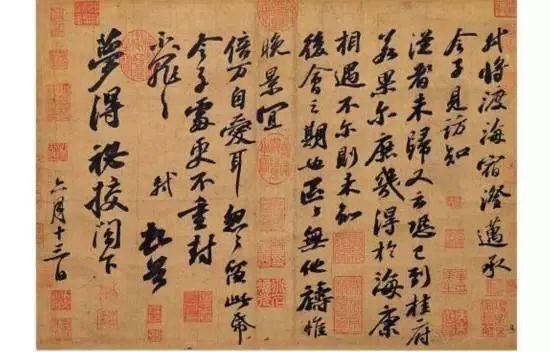 軾將渡海宿澄邁承
令子見訪知
從者未歸又云恐已到桂府
若果尔庶幾得於海康
相遇不尔則未知
後會之期也區〻無他禱惟
晚景宜
倍万自愛耳忽〻留此帋
令子處更不重封
不罪〻 軾 頓首
夢得祕校閣下
六月十三日